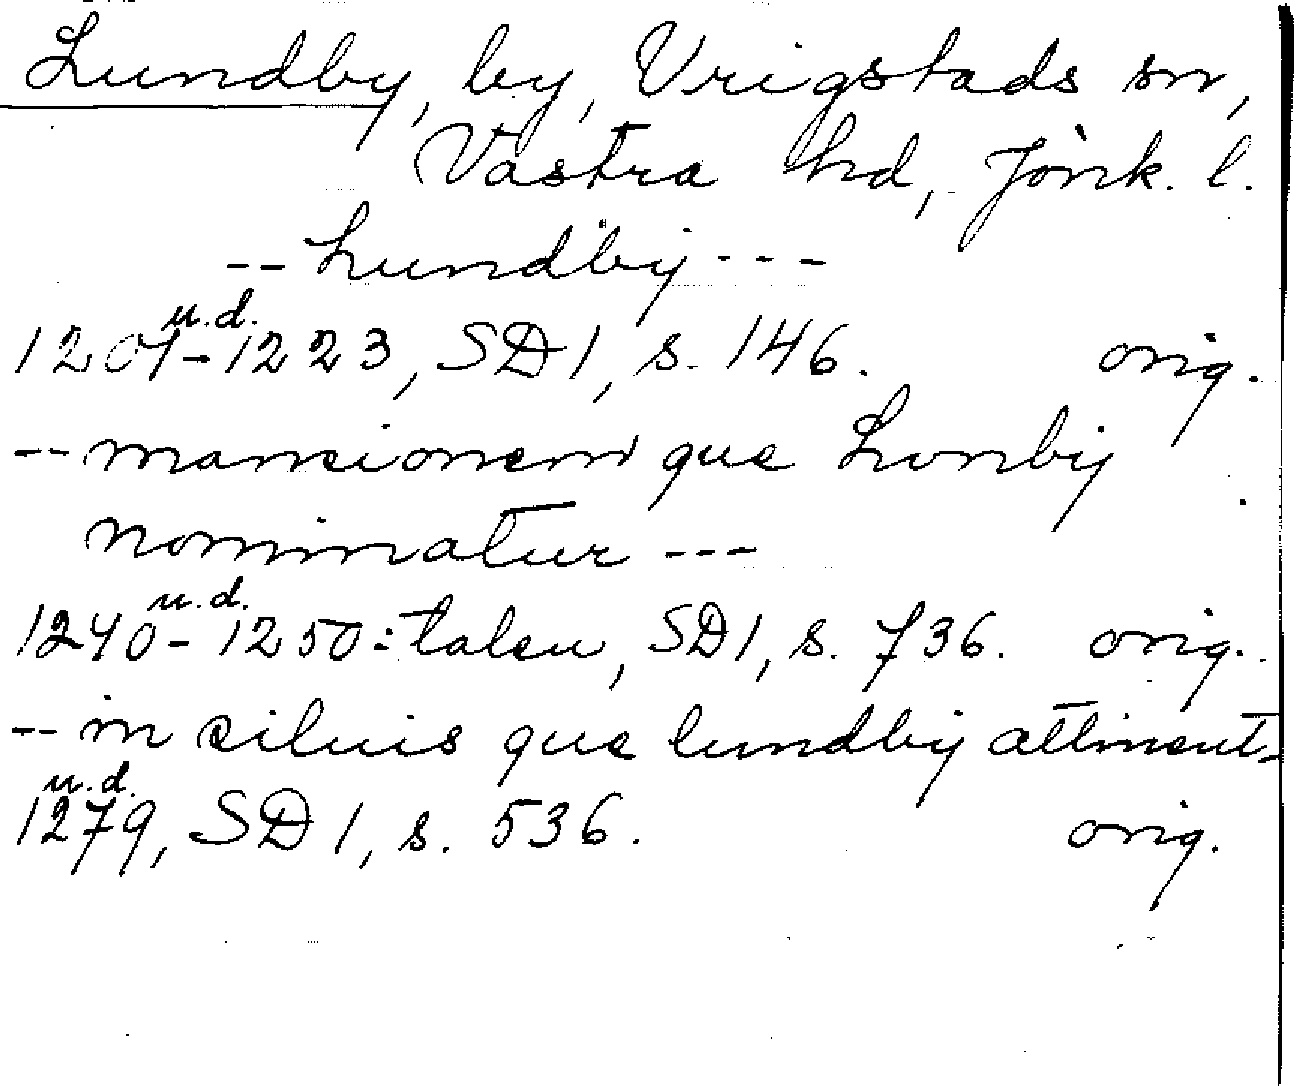 Lundby, by, Vrigstads sn,
Västra hd, Jönk. l.
-- Lundby ---
u.d.
1207-1223, SD 1, s. 146. orig.
-- mansionem que Lvnby
nominatur ---
u.d.
1240-1250=talen, SD 1, s. 736. orig.
-- in siluis que lundby attinent-
u.d.
1279, SD 1, s. 536. orig.